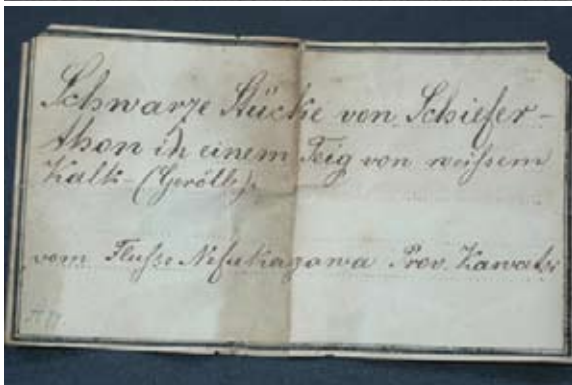 Schwarze Stücke von Schiefer-
thon in einem Teig von weißem
Kalk-(Gerölle).
vom Fluße Nifukazawa Prov. Kawatsi